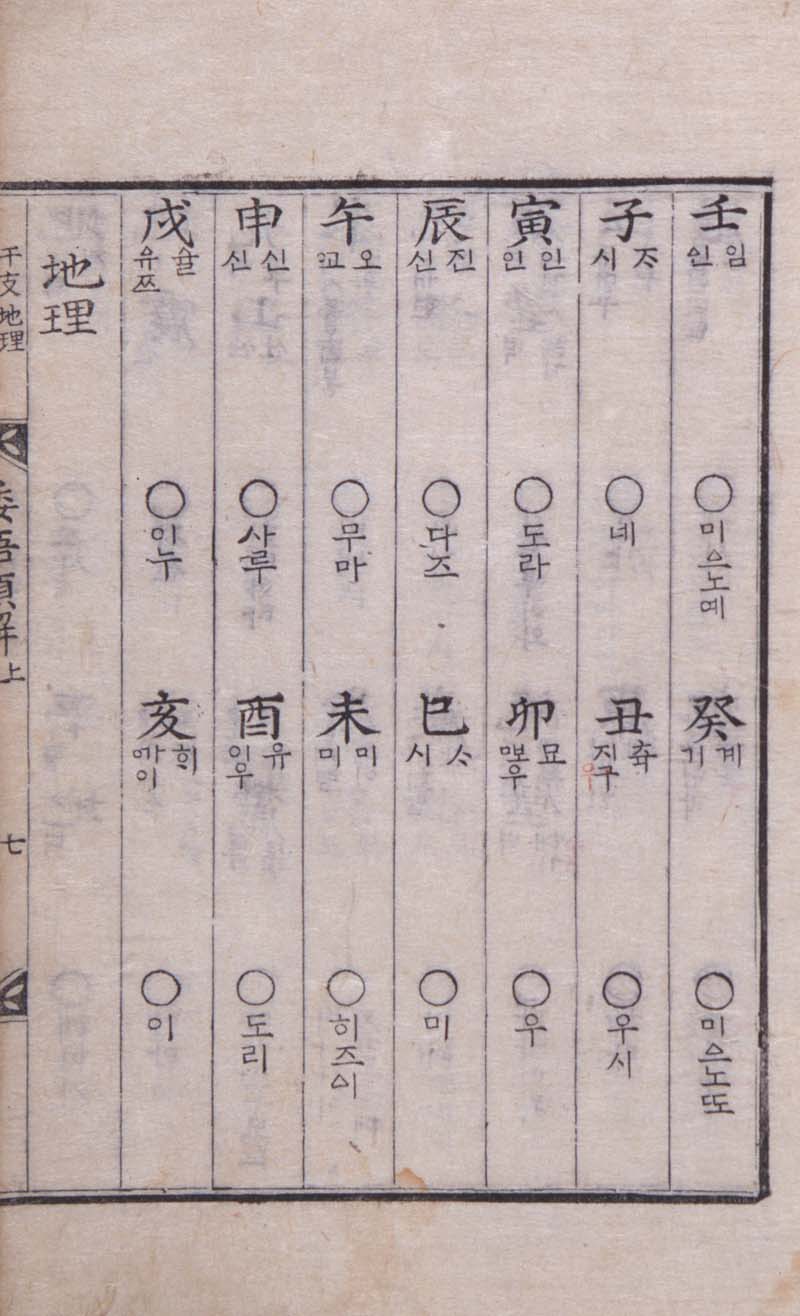 壬 임 인 ○미ᅀᅳ노예 癸 계 기 ○미ᅀᅳ노ᄯᅩ
子 ᄌᆞ 시 ○네 丑 츅 지구 우 ○우시
寅 인 인 ○도라 卯 묘 ○우
辰 진 신 ○다즈 巳 ᄉᆞ 시 ○미
午 오 ᅁᅩ ○무마 未 미 미 ○히즈ᅀᅵ
申 신 신 ○사루 酉 유 이우 ○도리
戌 슐 유쯔 ○이누 亥 ᄒᆡ ᅁᅡ이 ○이
地理
干支地理 倭語類解上 七